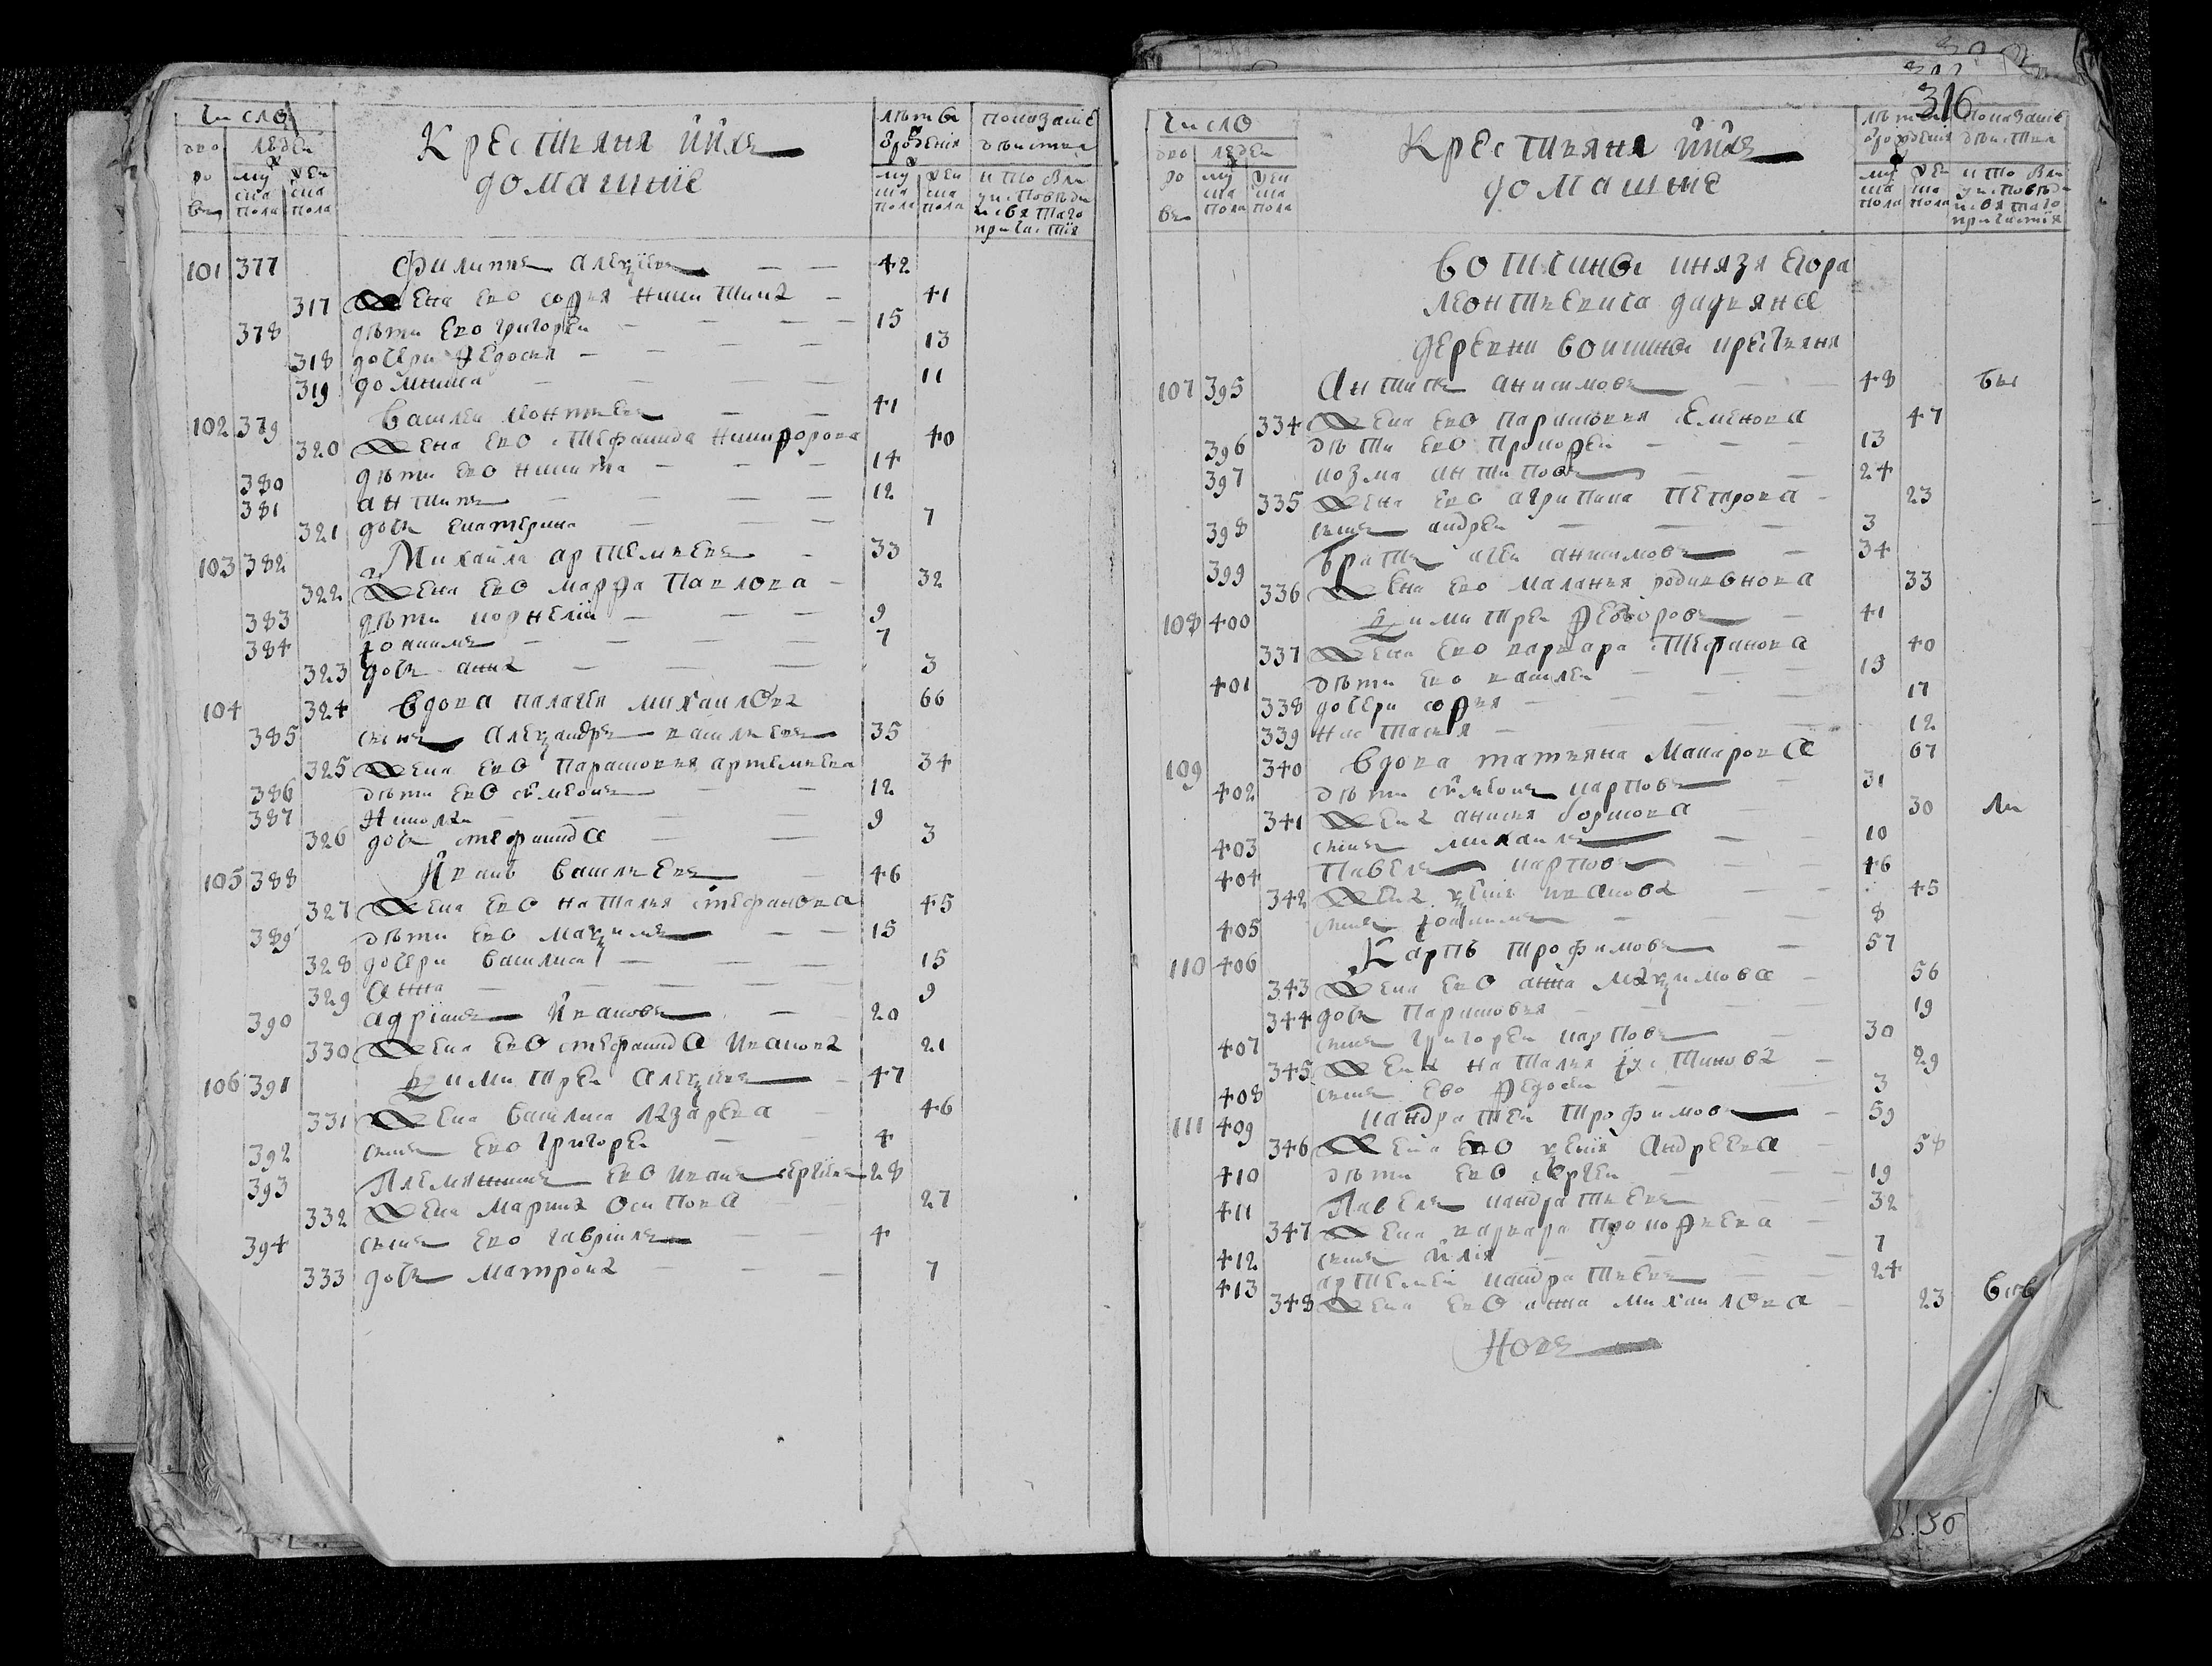 Число
дво ро въ
людеи
муска пола
женска пола
Крестьяня и ихъ домашніе
лѣты от рожденія
муска пола
женска пола
показаніе дѣиства
кто был у исповѣди и святаго причастія
101 377 Филиппъ Алексіевъ 42
317 Жена ево Софья Никитина 41
378 дѣти ево Григореи 15
318 дочери Федосия 13
319 Домника 11
102 379 Василеи Леонтиевъ 41
320 Жена ево Стефанида Никифорова 40
380 дѣти ево Никита 14
381 Антипъ 12
321 дочь Екатерина 7
103 382 Михаила Артемьевъ 33
322 Жена ево Марфа Павлова 32
383 дѣти Корнелии 9
384 Іоакимъ 7
323 дочь Анна 3
104 324 Вдова Палагея Михаилова 66
385 сынъ Александръ Васильевъ 35
325 Жена ево Парасковья Артемьева 34
386 дѣти ево Симеонъ 12
387 Николаи 9
326 дочь Стефанида 3
105 388 Иванъ Васильевъ 46
327 Жена ево Наталья Стефанова 45
389 дѣти ево Максимъ 15
328 дочери Василиса 15
329 Анна 9
390 Адріанъ Ивановъ 20
330 Жена ево Стефанида Иванова 21
106 391 Димитреи Алексіевъ 47
331 Жена Василиса Лазарева 46
392 сынъ ево Григореи 4
393 Племянникъ ево Иванъ Сергіевъ 28
332 Жена Марина Осипова 27
394 сынъ ево Гавріилъ 4
333 дочь Матрона 7
316
Число
дво ро въ
людеи
муска пола
женска пола
Крестьяня и ихъ домашніе
лѣты от рожденія
муска пола
женска пола
показаніе дѣиства
кто был у исповѣди и святаго причастія
вотчины князя Егора
Леонтьевича Дадьяна
деревни Вошины крестьяня
107 395 Антипъ Анисимовъ 48 бы
334 Жена ево Парасковья Семенова 47
396 дѣти ево Прокофеи 13
397 Козма Антиповъ 24
335 Жена ево Агрипина Петрова 23
398 сынъ Андреи 3
399 братъ Агеи Анисимовъ 34
336 Жена ево Маланья Родивонова 33
108 400 Димитреи Федоровъ 41
337 Жена ево Варвара Стефанова 40
401 дѣти ево Василеи 15
338 дочери Софья 17
339 Настасья 12
109 340 Вдова Татьяна Макарова 67
402 дѣти Симеонъ Карповъ 31
341 Жена Анисия Борисова 30 ли
403 сынъ Михаилъ 10
404 Павелъ Карповъ 46
342 Жена Ксенія Иванова 45
405 сынъ Іоакимъ 8
110 406 Карпъ Трофимовъ 57
343 Жена ево Анна Максимова 56
344 дочь Парасковья 19
407 сынъ Григореи Карповъ 30
345 Жена Наталья Іустинова 29
408 сынъ ево Федосеи 3
111 409 Кандратеи Трофимовъ 59
346 Жена ево Ксенія Андреева 58
410 дѣти ево Сергеи 19
411 Павелъ Кандратьевъ 32
347 Жена Варвара Прокофьева 
412 сынъ Илія 7
413 Артемеи Кандратьевъ 24
348 Жена ево Анна Михаилова 23